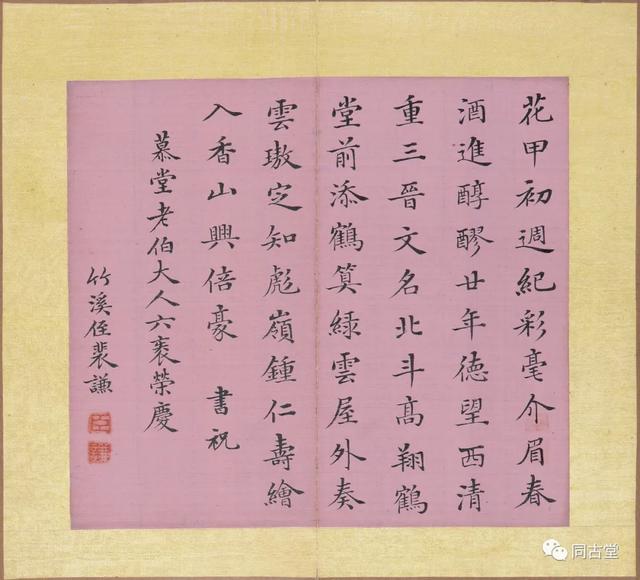 花甲初週紀彩毫介眉春
酒進醇醪廿年徳望西清
重三晉文名北斗髙翔鶴
堂前添鶴筭綠雲屋外奏
雲璈定知彪嶺鍾仁壽繪
入香山興倍豪 書祝
慕堂老伯大人六袠榮慶
竹溪侄裴謙
臣
謙
同古堂